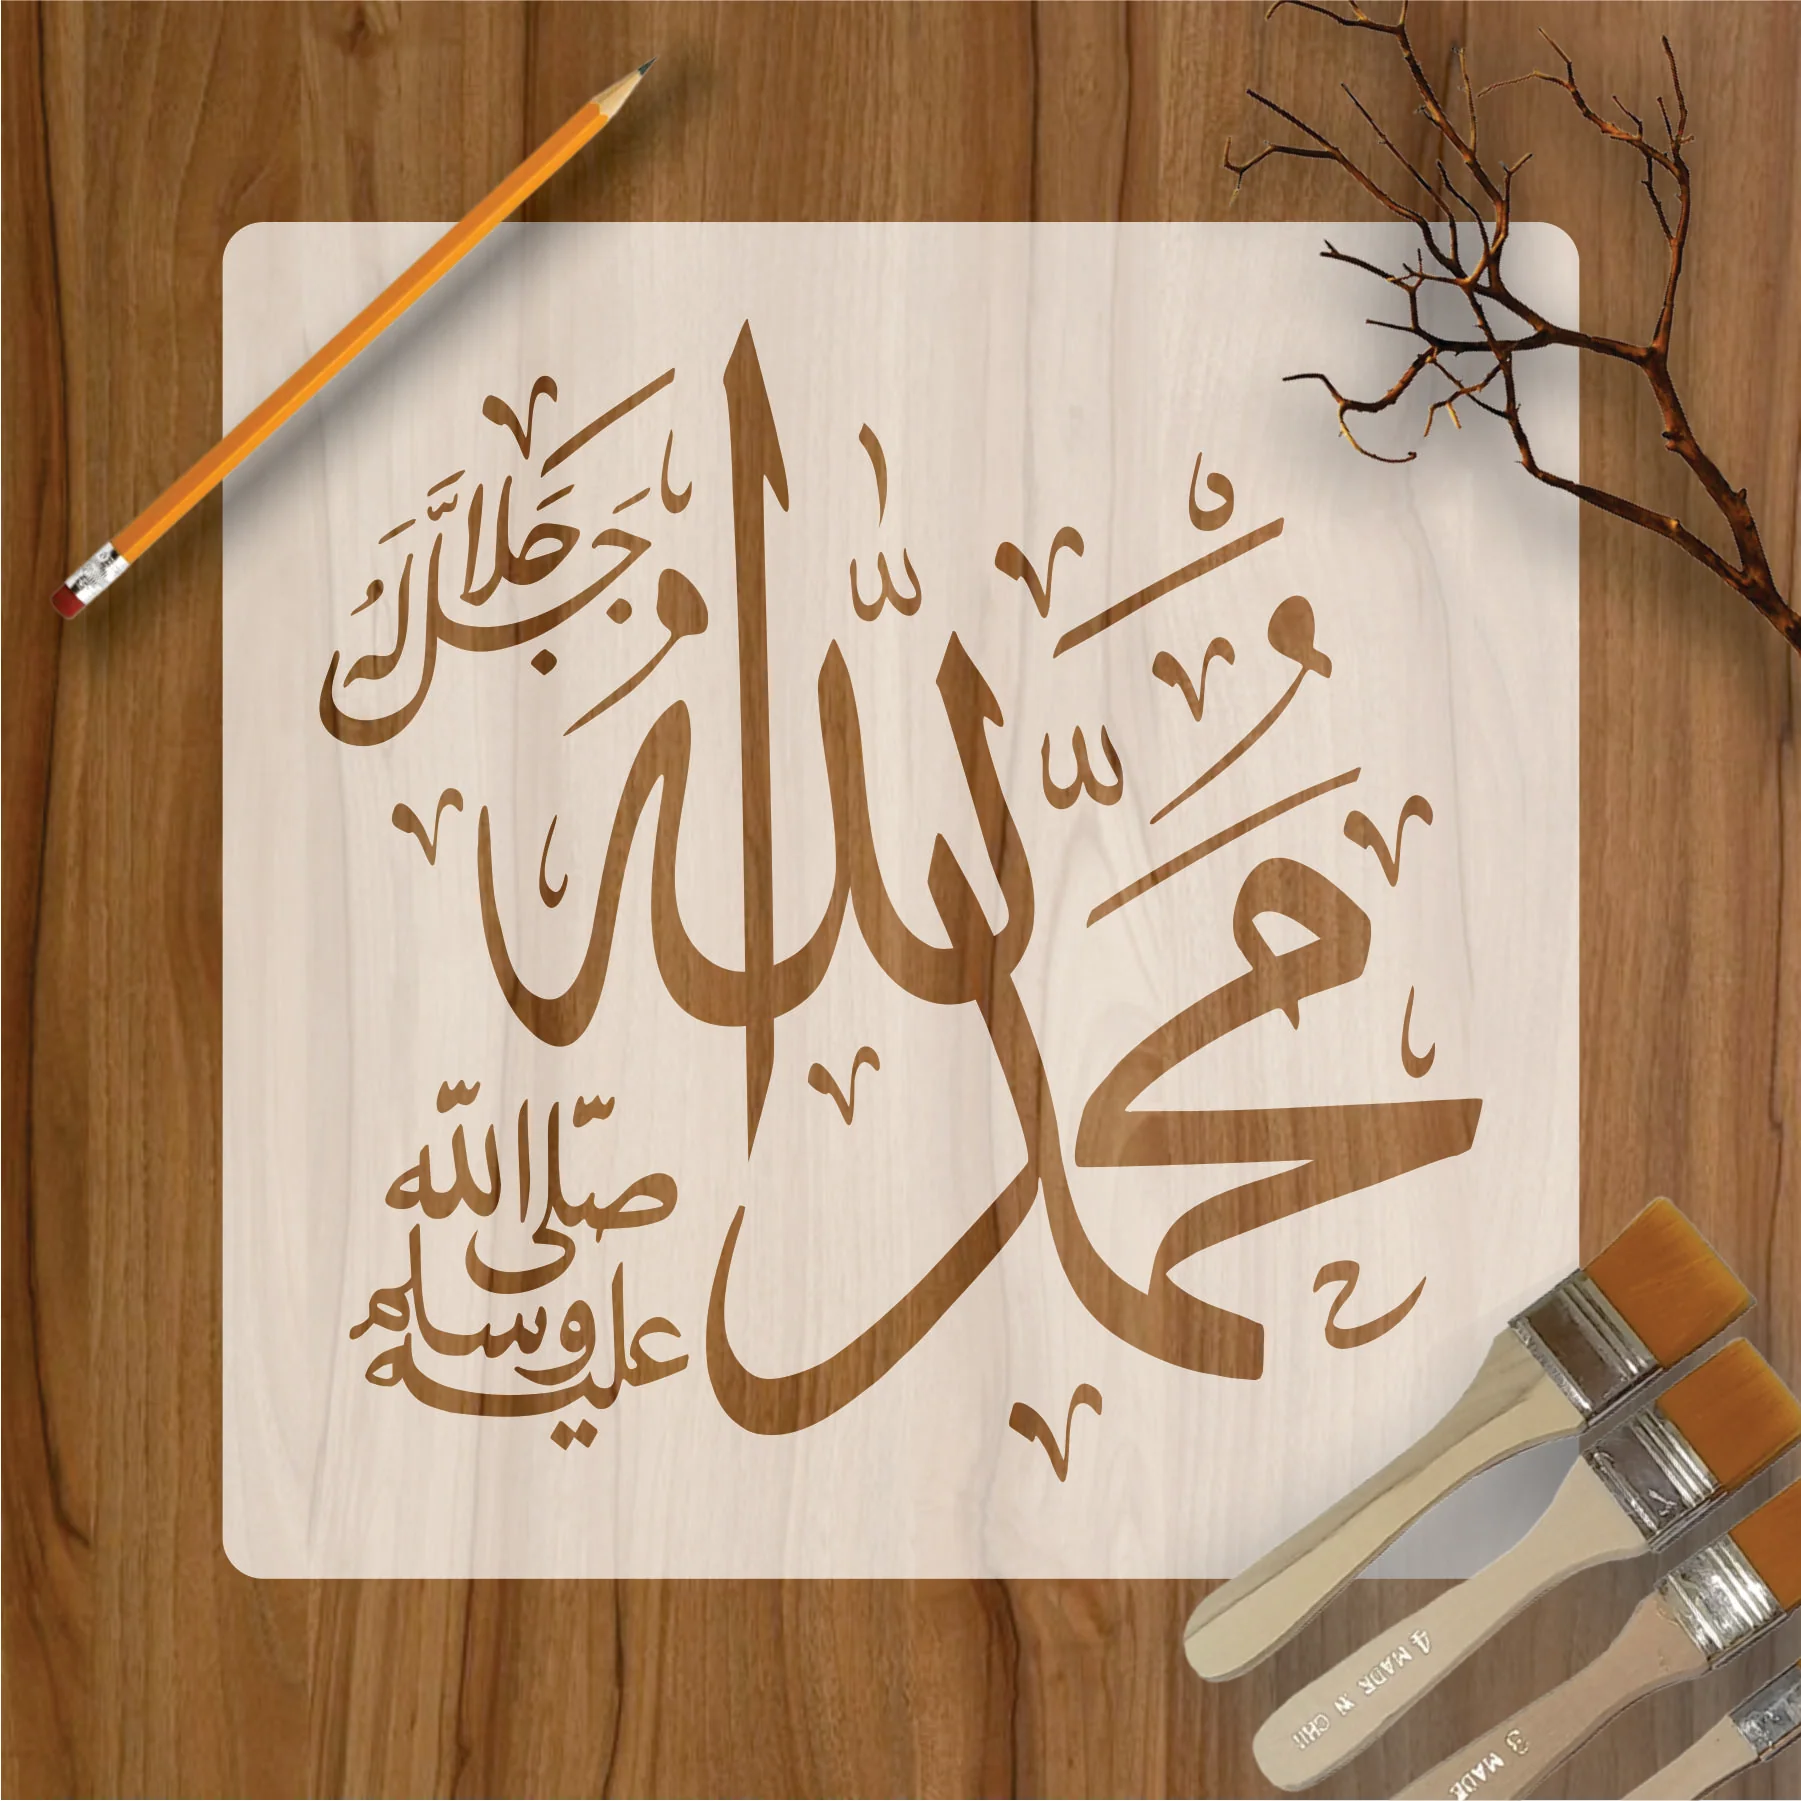 الله
جل جلاله
محمد
صلى الله
عليه وسلم
4 MADE IN CHI
3 MADE